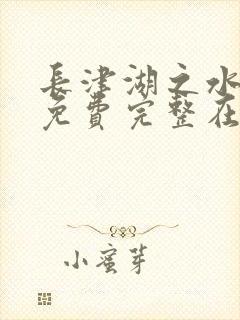 長津湖之水
免費完整在
小蜜芽